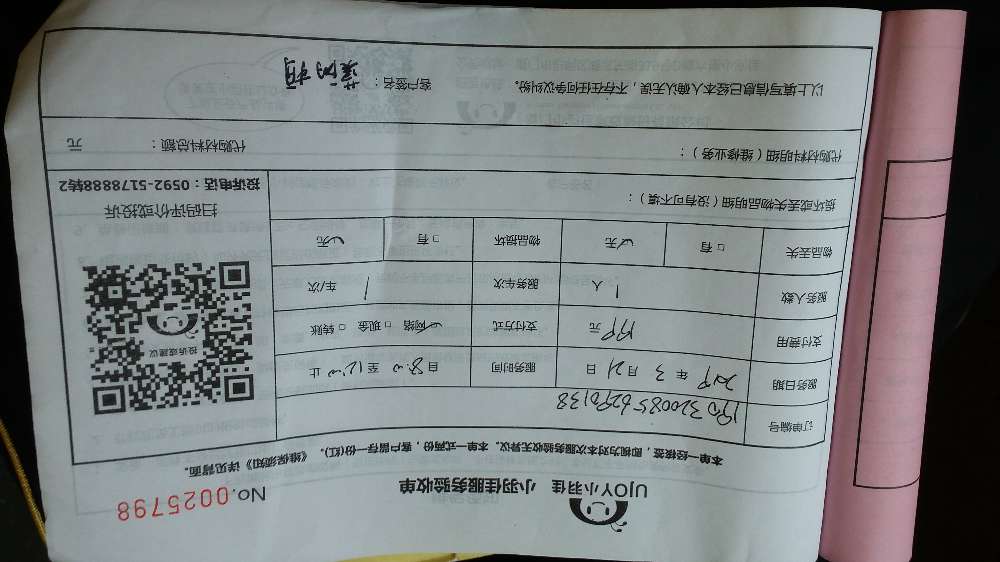 UJOY小羽佳 小羽佳服务验收单
No.0025798
本单一经核签，即视为对本次服务验收无异议。本单一式两份，客户留存一份(红)。《维保须知》详见背面。
订单编号 1903200856290138
服务日期 2019年3月21日 服务时间 自8:00至12:00止
支付费用 199元 支付方式 ☑网络 □现金 □转账
服务人数 1人 服务车次 1车/次
物品丢失 □有 ☑无 物品损坏 □有 ☑无
损坏或丢失物品明细（没有可不填）：
代购材料明细（维修业务）： 代购材料总额： 元
以上填写信息已经本人确认无误，不存在任何争议纠纷。 客户签名：
投诉或建议
扫码评价或投诉
投诉电话：0592-5178888转2